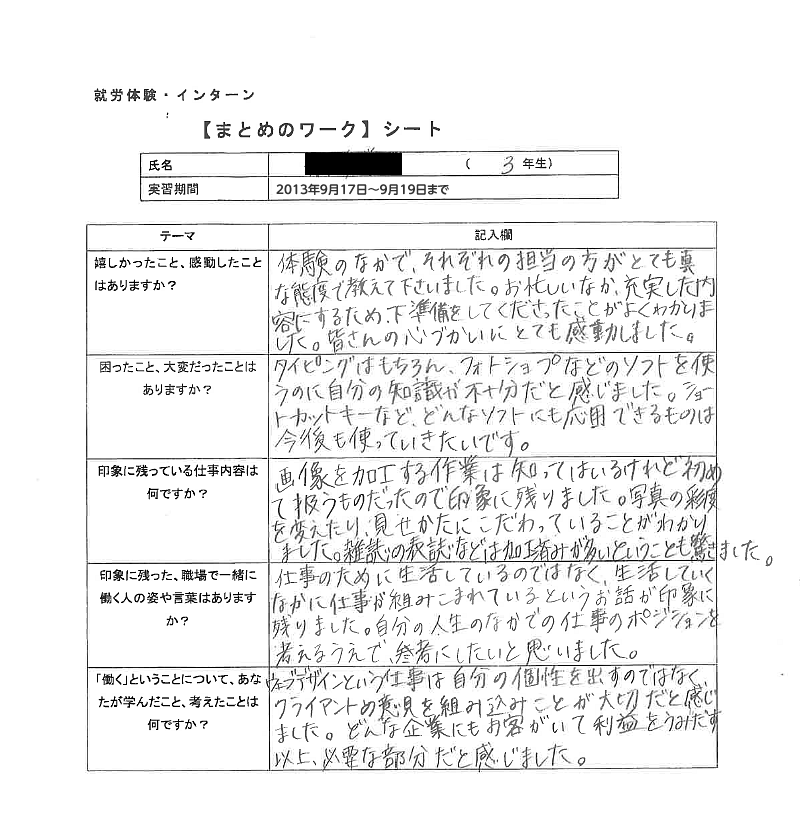 就労体験・インターン
【まとめのワーク】シート
氏名 ( 3 年生)
実習期間 2013年9月17日~9月19日まで
テーマ 記入欄
嬉しかったこと、感動したこと
はありますか?
体験のなかで、それぞれの担当の方がとても真
な態度で教えて下さいました。お忙しいなか、充実した内
容にするため、下準備をしてくださったことがよくわかりま
した。皆さんの心づかいにとても感動しました。
困ったこと、大変だったことは
ありますか?
タイピングはもちろん、フォトショップなどのソフトを使
うのに自分の知識が不十分だと感じました。ショー
トカットキーなど、どんなソフトにも応用できるものは
今後も使っていきたいです。
印象に残っている仕事内容は
何ですか?
画像を加工する作業は知ってはいるけれど初め
て扱うものだったので印象に残りました。写真の彩度
を変えたり、見せかたにこだわっていることがわかり
ました。雑誌の表誌などは加工済みが多いということも驚きました。
印象に残った、職場で一緒に
働く人の姿や言葉はあります
か?
仕事のために生活しているのではなく、生活していく
なかに仕事が組みこまれているというお話が印象に
残りました。自分の人生のなかでの仕事のポジションを
考えるうえで、参考にしたいと思いました。
「働く」ということについて、あな
たが学んだこと、考えたことは
何ですか?
ウェブデザインという仕事は自分の個性を出すのではなく、
クライアントの意見を組み込みことが大切だと感じ
ました。どんな企業にもお客がいて利益をうみだす
以上、必要な部分だと感じました。